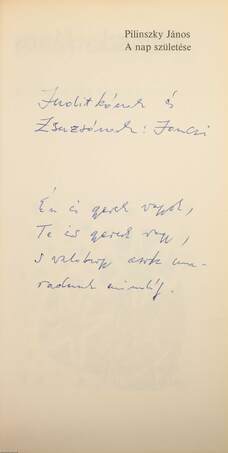 Pilinszky János
A nap születése
Juditkának és
Zsuzsónak: Jancsi
Én is gyerek vagyok,
Te is gyerek vagy,
s valahogy azok ma-
radunk mindig.